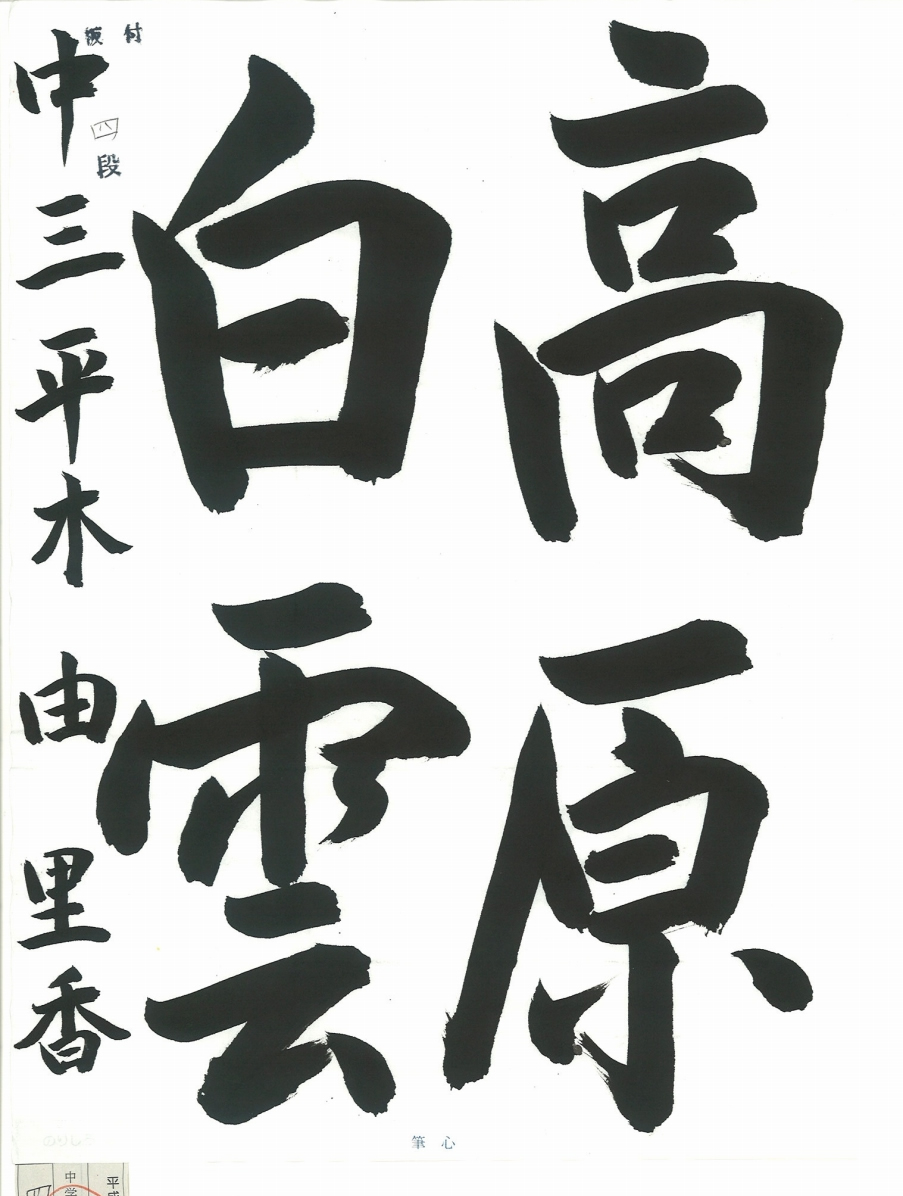 高原
白雲
中三平木由里香
四段
筆心
のりしろ
中学
四